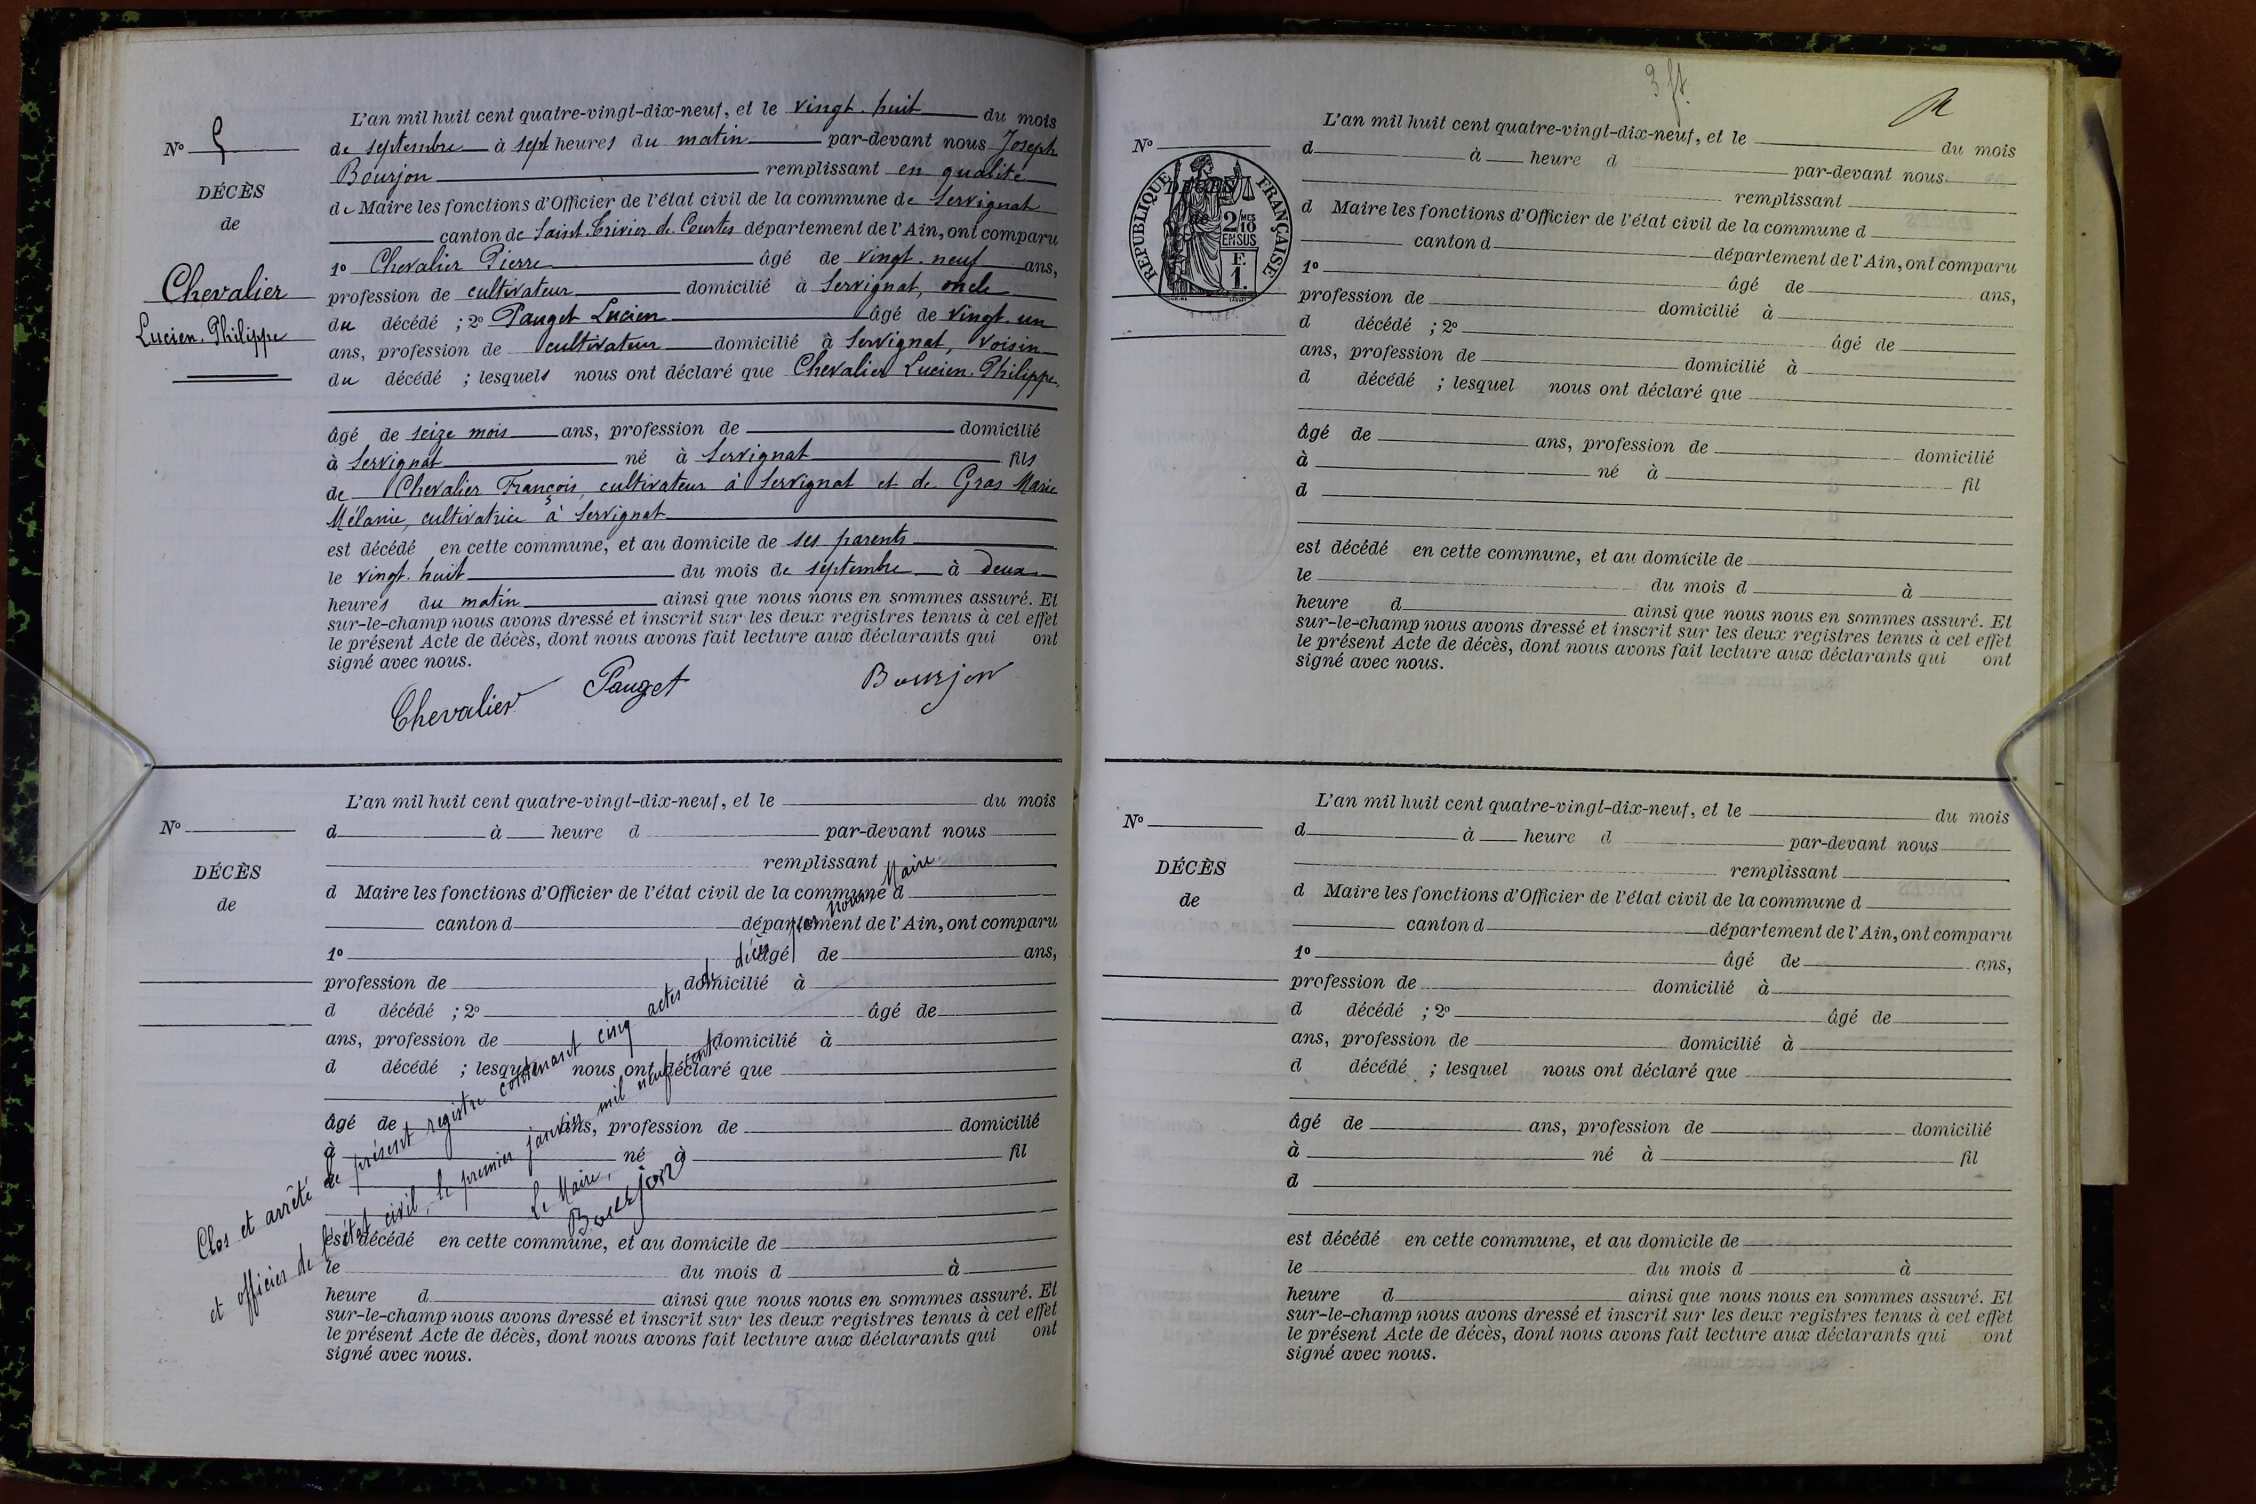 N° 5
DÉCÈS
de
Chevalier
Lucien Philippe
L'an mil huit cent quatre-vingt-dix-neuf, et le vingt-huit du mois
de septembre à sept heures du matin par-devant nous Joseph
Bourjon remplissant en qualité
de Maire les fonctions d'Officier de l'état civil de la commune de Servignat
canton de Saint-Trivier-de-Courtes département de l'Ain, ont comparu
1° Chevalier Pierre âgé de vingt-neuf ans,
profession de cultivateur domicilié à Servignat, oncle
du décédé ; 2° Pauget Lucien âgé de vingt-un
ans, profession de cultivateur domicilié à Servignat, voisin
du décédé ; lesquels nous ont déclaré que Chevalier Lucien-Philippe,
âgé de seize mois ans, profession de domicilié
à Servignat né à Servignat fils
de Chevalier François, cultivateur à Servignat et de Gras Marie
Mélanie, cultivatrice à Servignat
est décédé en cette commune, et au domicile de ses parents
le vingt-huit du mois de septembre à deux
heures du matin ainsi que nous nous en sommes assuré. Et
sur-le-champ nous avons dressé et inscrit sur les deux registres tenus à cet effet
le présent Acte de décès, dont nous avons fait lecture aux déclarants qui ont
signé avec nous.
Chevalier Pauget Bourjon
N°
DÉCÈS
de
L'an mil huit cent quatre-vingt-dix-neuf, et le du mois
d à heure d par-devant nous
remplissant
d Maire les fonctions d'Officier de l'état civil de la commune d
canton d département de l'Ain, ont comparu
1° âgé de ans,
profession de domicilié à
d décédé ; 2° âgé de
ans, profession de domicilié à
d décédé ; lesquel nous ont déclaré que
âgé de ans, profession de domicilié
à né à fil
d
est décédé en cette commune, et au domicile de
le du mois d à
heure d ainsi que nous nous en sommes assuré. Et
sur-le-champ nous avons dressé et inscrit sur les deux registres tenus à cet effet
le présent Acte de décès, dont nous avons fait lecture aux déclarants qui ont
signé avec nous.
Clos et arrêté le présent registre contenant cinq actes de décès par nous, Maire
et officier de l'état civil, le premier janvier mil neuf cent.
Le Maire,
Bourjon
3 ft
N°
RÉPUBLIQUE FRANÇAISE
DÉCÈS
de
2/10 MES
EN SUS
F.
1.
L'an mil huit cent quatre-vingt-dix-neuf, et le du mois
d à heure d par-devant nous
remplissant
d Maire les fonctions d'Officier de l'état civil de la commune d
canton d département de l'Ain, ont comparu
1° âgé de ans,
profession de domicilié à
d décédé ; 2° âgé de
ans, profession de domicilié à
d décédé ; lesquel nous ont déclaré que
âgé de ans, profession de domicilié
à né à fil
d
est décédé en cette commune, et au domicile de
le du mois d à
heure d ainsi que nous nous en sommes assuré. Et
sur-le-champ nous avons dressé et inscrit sur les deux registres tenus à cet effet
le présent Acte de décès, dont nous avons fait lecture aux déclarants qui ont
signé avec nous.
N°
DÉCÈS
de
L'an mil huit cent quatre-vingt-dix-neuf, et le du mois
d à heure d par-devant nous
remplissant
d Maire les fonctions d'Officier de l'état civil de la commune d
canton d département de l'Ain, ont comparu
1° âgé de ans,
profession de domicilié à
d décédé ; 2° âgé de
ans, profession de domicilié à
d décédé ; lesquel nous ont déclaré que
âgé de ans, profession de domicilié
à né à fil
d
est décédé en cette commune, et au domicile de
le du mois d à
heure d ainsi que nous nous en sommes assuré. Et
sur-le-champ nous avons dressé et inscrit sur les deux registres tenus à cet effet
le présent Acte de décès, dont nous avons fait lecture aux déclarants qui ont
signé avec nous.